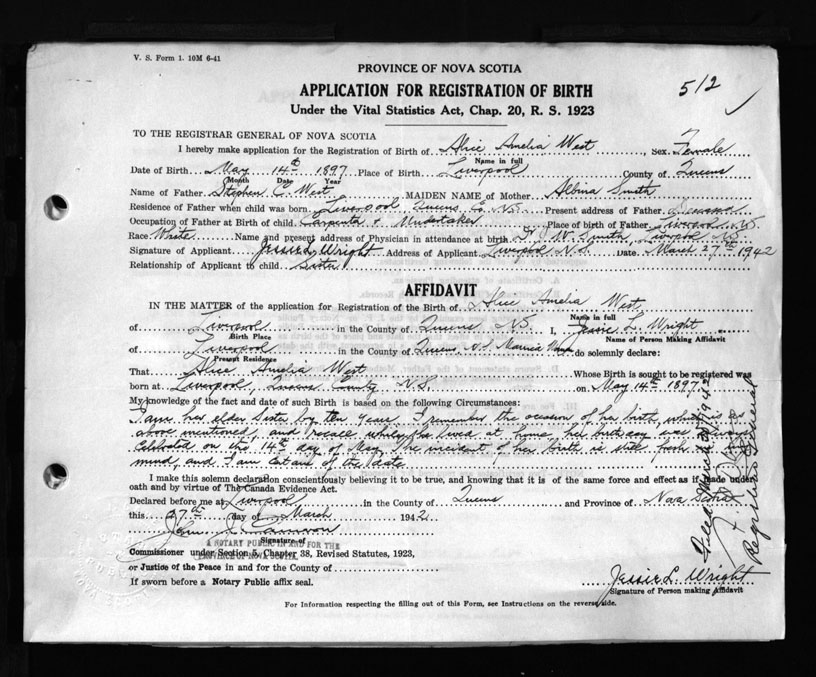 V. S. Form 1. 10M 6-41
PROVINCE OF NOVA SCOTIA
512
APPLICATION FOR REGISTRATION OF BIRTH
Under the Vital Statistics Act, Chap. 20, R. S. 1923
TO THE REGISTRAR GENERAL OF NOVA SCOTIA
I hereby make application for the Registration of Birth of Alice Amelia West, Sex Female
Name in full
Date of Birth May 14th 1897 Place of Birth Liverpool County of Queens
Month Date Year
Name of Father Stephen E. West MAIDEN NAME of Mother Albina Smith
Residence of Father when child was born Liverpool Queens Co. N.S. Present address of Father Deceased
Occupation of Father at Birth of child Carpenter & Undertaker Place of birth of Father Liverpool N.S.
Race White Name and present address of Physician in attendance at birth Dr. J. W. Smith, Liverpool N.S.
Signature of Applicant Jessie L. Wright Address of Applicant Liverpool N.S. Date March 27th 1942
Relationship of Applicant to child Sister
AFFIDAVIT
IN THE MATTER of the application for Registration of the Birth of Alice Amelia West
Name in full
of Liverpool in the County of Queens N.S. I, Jessie L. Wright
Birth Place Name of Person Making Affidavit
of Liverpool in the County of Queens, N.S. Married Woman do solemnly declare:
Present Residence
That Alice Amelia West Whose Birth is sought to be registered was
born at Liverpool, Queens County N.S. on May 14th 1897
My knowledge of the fact and date of such Birth is based on the following Circumstances:
I am her elder Sister by ten years. I remember the occasion of her birth, which is as
above mentioned, and recall while she lived at home her birthday was always
Celebrated on the 14th day of May. The incident of her birth is still fresh in my
mind, and I am certain of the date
I make this solemn declaration conscientiously believing it to be true, and knowing that it is of the same force and effect as if made under
oath and by virtue of The Canada Evidence Act.
Declared before me at Liverpool in the County of Queens and Province of Nova Scotia
this 27th day of March 1942
Signature of
A NOTARY PUBLIC IN AND FOR THE
PROVINCE OF NOVA SCOTIA
Commissioner under Section 5, Chapter 38, Revised Statutes, 1923,
or Justice of the Peace in and for the County of
If sworn before a Notary Public affix seal.
Jessie L. Wright
Signature of Person making Affidavit
For Information respecting the filling out of this Form, see Instructions on the reverse side.
Filed March 1942
Registrar General